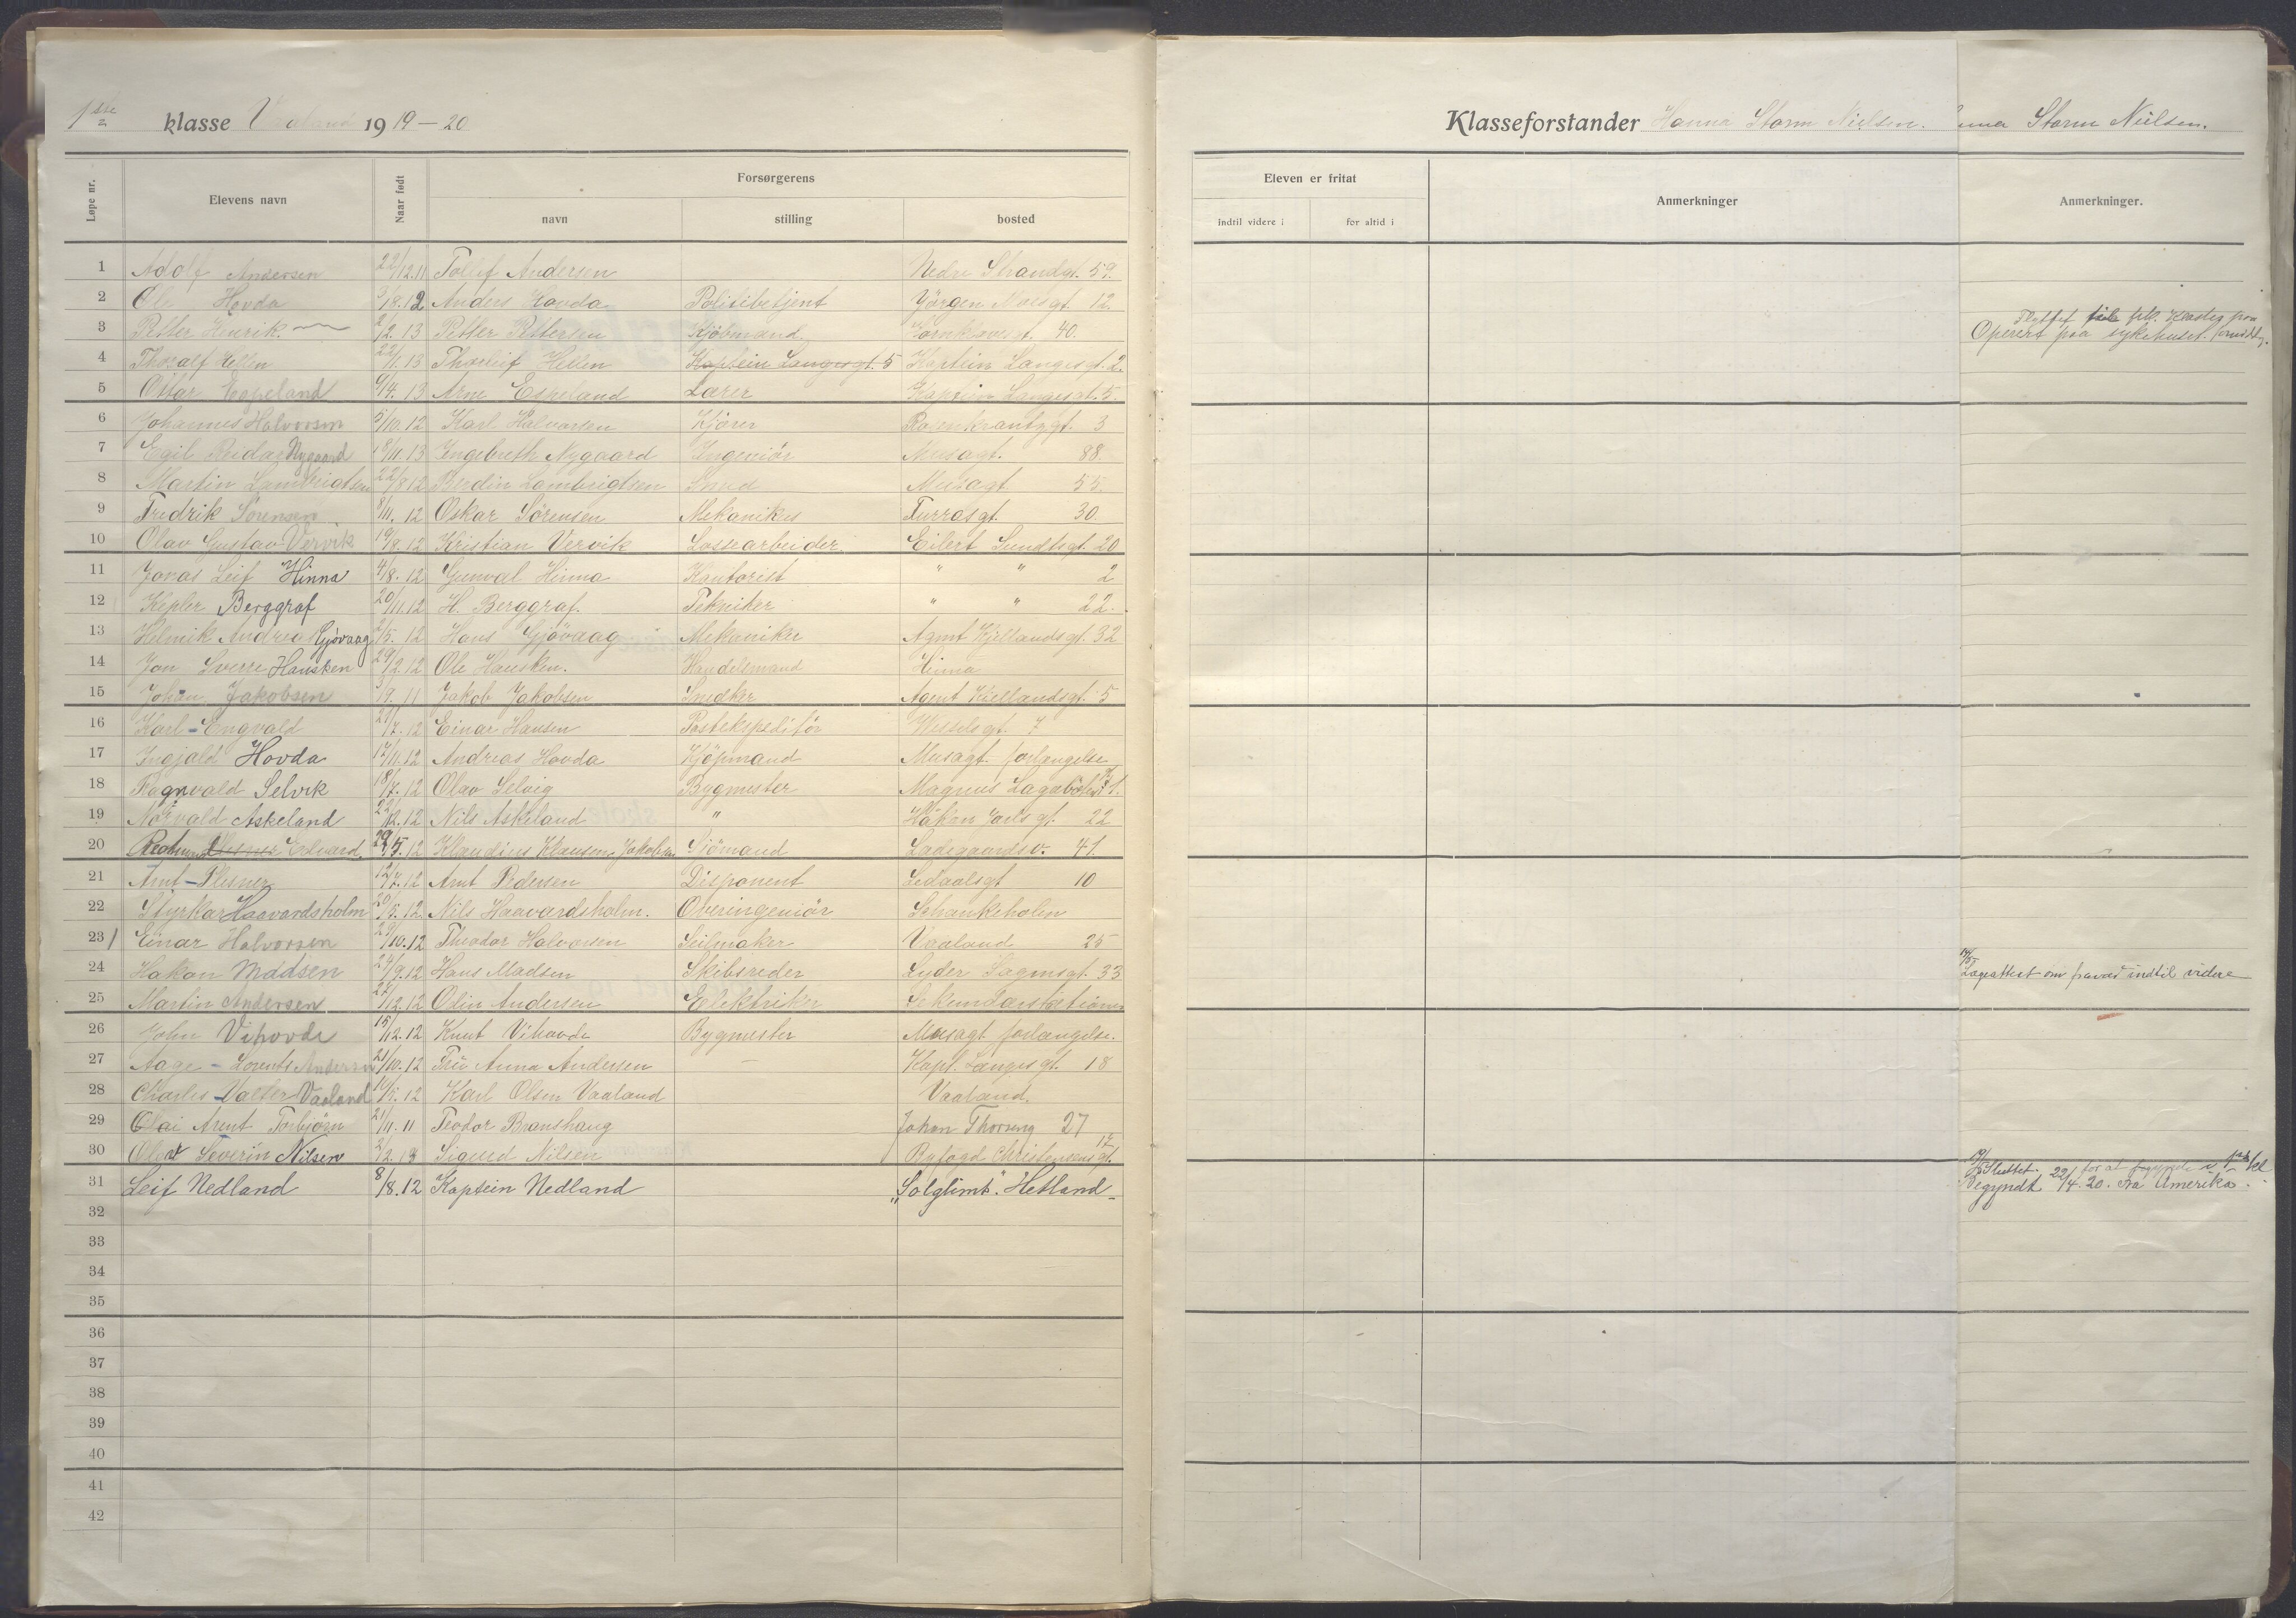 1ste klasse Vaaland 1919 – 20
Klasseforstander Hanna Storm Nielsen. nna Storm Nielsen.
Løpe nr. Elevens navn Naar født Forsørgerens
navn stilling bosted
Eleven er fritat Anmerkninger Anmerkninger.
Indtil videre i for altid i
1 Adolf Andersen 22/12.11 Tollif Andersen Nedre Strandgt. 59.
2 Ole Hovda 3/8.12 Anders Hovda Politibetjent Jörgen Moesgt 12.
3 Petter Henrik 2/2.13 Petter Pettersen Kjöbmand 40.
Flyttet frk.
Operert paa sykehuset.
4 Thoralf Hellen 22/1.13 Thorleif Hellen Kaptein Langesgt. 5 Kaptein Langesgt. 2.
5 Ottar Espeland 9/4.13 Arne Espeland Lærer Kaptein Langesgt. 5.
6 Johannes Halvorsen 5/10.12 Karl Halvorsen Kjörer Rosenkrantzgt. 3
7 Egil Reidar Nygaard 18/11.13 Ingebreth Nygaard Ingeniör Musagt. 88
8 Martin Lambrigtsen 22/8.12 Berdin Lambrigtsen Smed Musagt 55.
9 Fredrik Sörensen 8/11.12 Oskar Sörensen Mekaniker Furrasgt. 30.
10 Olav Gustav Vervik 19/8.12 Kristian Vervik Lossearbeider Eilert Sundtsgt. 20
11 Jonas Leif Hinna 4/8.12 Gunval Hinna Kontorist " " 2
12 Kepler Berggraf 20/11.12 H. Berggraf. Tekniker " " 22.
13 Helmik Andreas Gjövaag 2/5.12 Hans Gjövaag Mekaniker Agent Kjellandsgt. 32
14 Jon Sverre Hausken 29/2.12 Ole Hausken. Handelsmand Hinna
15 Johan Jakobsen 3/9.11 Jakob Jakobsen Snedker Agent Kiellandsgt. 5
16 Karl – Engvald 21/7.12 Einar Hansen Postekspeditör Wesselsgt. 7
17 Ingjald Hovda 17/11.12 Andreas Hovda Kjöpmand Musagt. forlængelse
18 Ragnvald Selvik 18/7.12 Olav Selvig Bygmester Magnus Lagabötersgt 1.
19 Norvald Askeland 22/12.12 Nils Askeland " Håkon Jarlsgt. 22
20 Reidmund Edvard. 29/5.12 Klaudius Klausen Jakobsen Sjömand Ladegaardsv. 41.
21 Arnt – Plesner 12/7.12 Arnt Pedersen Disponent Ledaalsgt 10
22 Styrkar Haavardsholm 20/5.12 Nils Haavardsholm. Overingeniör Schankeholen
23 Einar Halvorsen 29/10.12 Theodor Halvorsen Seilmaker Vaaland 25
24 Hakon Madsen 24/9.12 Hans Madsen Skibsreder Lyder Sagensgt. 33
Lægeattest om fravær indtil videre
25 Martin Andersen 27/12.12 Odin Andersen Elektriker Sekundærstationen
26 John Vihovde 15/12.12 Knut Vihovde Bygmester Musagt forlængelse.
27 Aage – Lorentz Andersen 21/10.12 Fru Anna Andersen — Kapt. Langesgt. 18
28 Charles Valter Vaaland 14/5.12 Karl Olsen Vaaland Vaaland.
29 Olai Arent Torbjörn 21/11.11 Teodor Branshaug Johan Thorseng 27
30 Olert Severin Nilsen 3/2.13 Sigurd Nilsen Byfogd Christensensgt. 17
Sluttet. for at begynde
31 Leif Nedland 8/8.12 Kaptein Nedland "Solglimt". Hetland
Begyndt 22/4.20. fra Amerika.
32
33
34
35
36
37
38
39
40
41
42